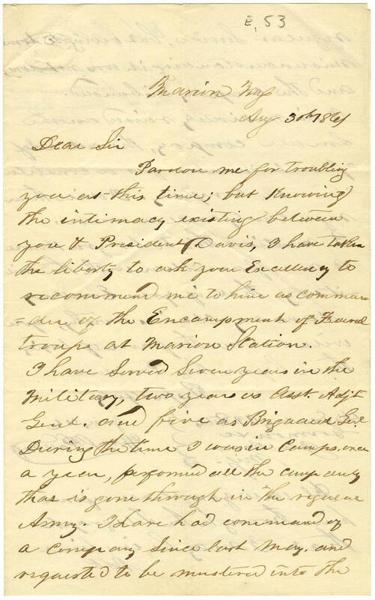 E, 53
Marion
Aug 30th 1861
Dear Sir
Pardon me for troubling
you at this time; but knowing
the intimacy existing between
you & President Davis, I have taken
the liberty to ask your Excellency to
recommend me to him as comman
=der of the Encampment of
troops at Marion Station.
I have served seven years in the
Military, two years as Asst. Adjt
Genl. and five as Brigade Genl
During the time I was in Camps, once
a year, performed all the camp duty
that is gone through in the regular
Army. I have had command of
a company since last May. and
requested to be mustered into the